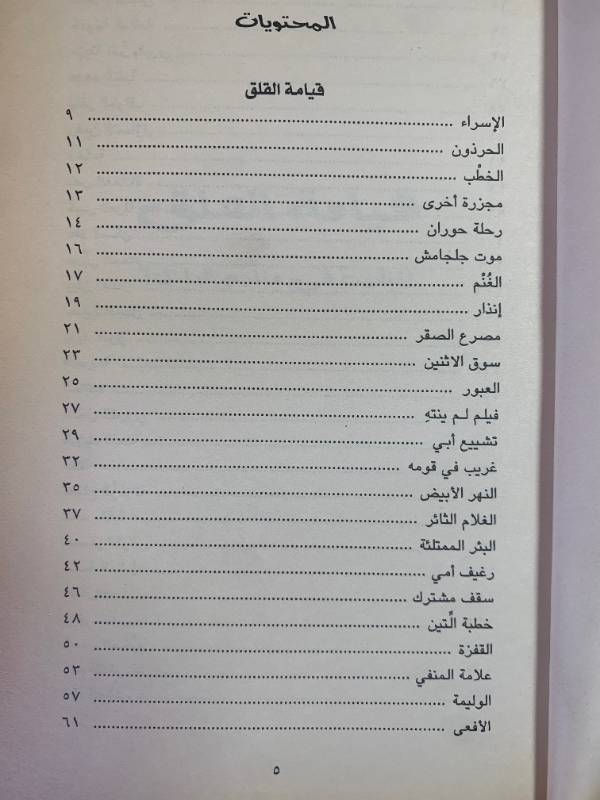 المحتويات
قيامة القلق
الإسراء ........ ٩
الحرذون ........ ١١
الخطْب ........ ١٢
مجزرة أخرى ........ ١٣
رحلة حوران ........ ١٤
موت جلجامش ........ ١٦
الغُنْم ........ ١٧
إنذار ........ ١٩
مصرع الصقر ........ ٢١
سوق الاثنين ........ ٢٣
العبور ........ ٢٥
فيلم لم ينتهِ ........ ٢٧
تشييع أبي ........ ٢٩
غريب في قومه ........ ٣٢
النهر الأبيض ........ ٣٥
الغلام الثائر ........ ٣٧
البئر الممتلئة ........ ٤٠
رغيف أمي ........ ٤٢
سقف مشترك ........ ٤٦
خطبة الِّتين ........ ٤٨
القفزة ........ ٥٠
علامة المنفي ........ ٥٣
الوليمة ........ ٥٧
الأفعى ........ ٦١
٥